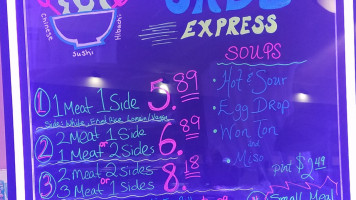 Chinese
Hibachi
Sushi
EXPRESS
SOUPS
• Hot & Sour
• Egg Drop
• Won Ton
and
• Miso
Pint $2.49
① 1 Meat 1 Side 5.89
② 2 Meat 1 Side
or 6.89
1 Meat 2 Sides
③ 2 meat 2 Sides
or 8.18
3 Meat 1 Sides
Small Meal